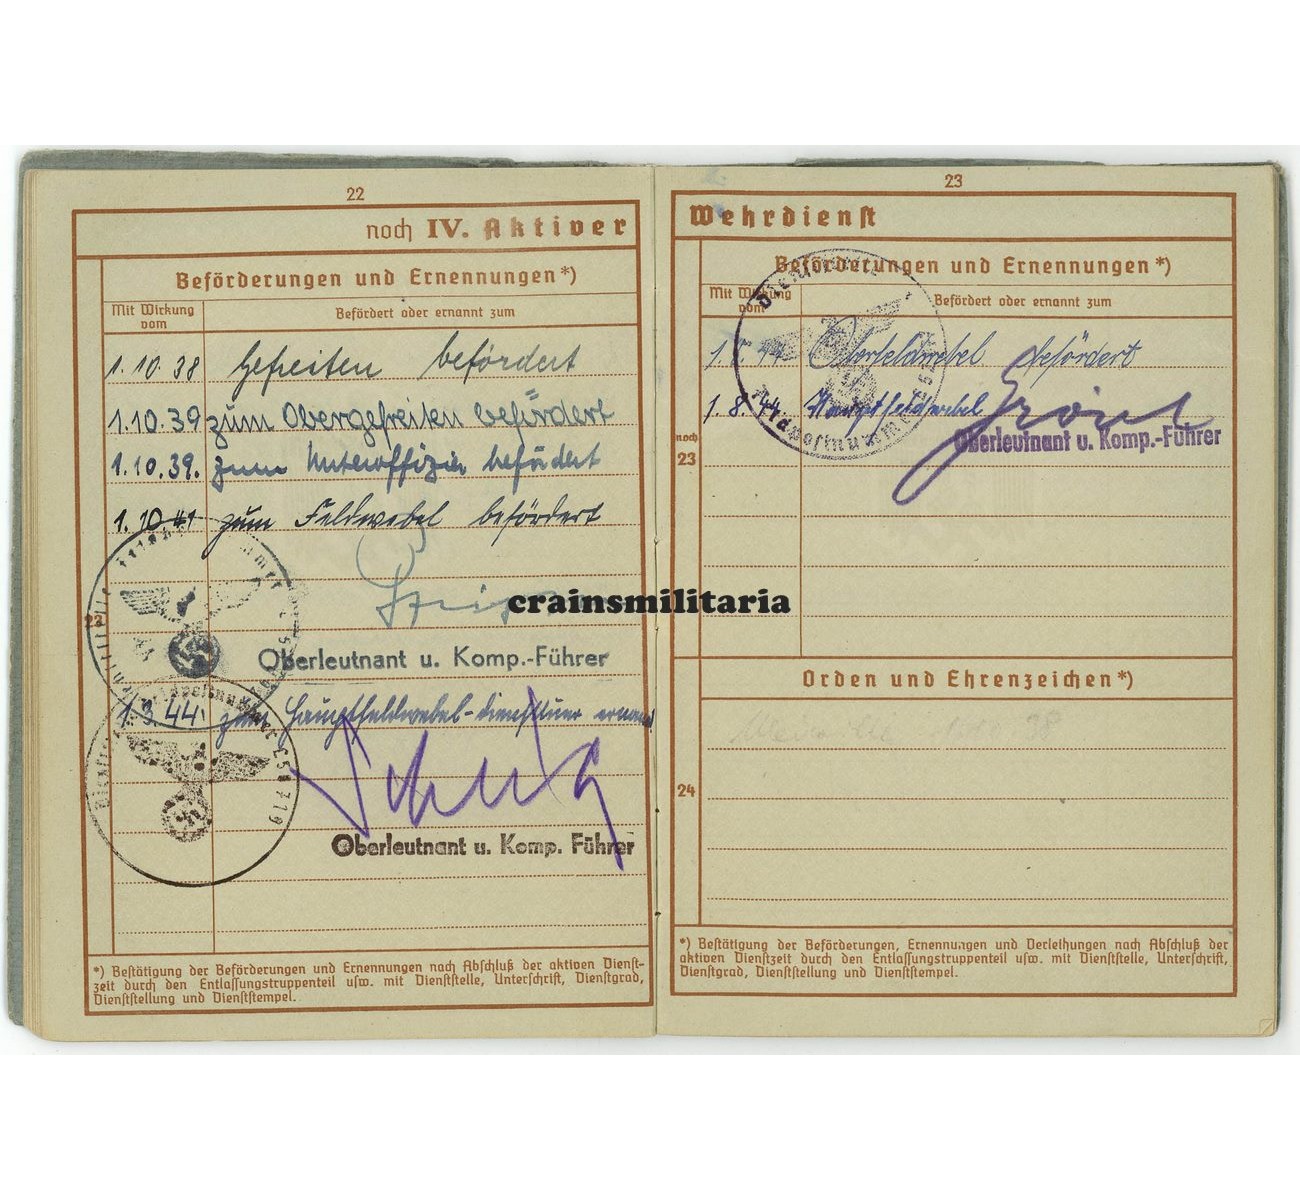 22
noch IV. Aktiver
Beförderungen und Ernennungen*)
Mit Wirkung vom
Befördert oder ernannt zum
1.10.38 Gefreiten befördert
1.10.39 zum Obergefreiten befördert
1.10.39. zum Unteroffizier befördert
1.10.41 zum Feldwebel befördert
23
Oberleutnant u. Komp.-Führer
1.3.44 zum Hauptfeldwebel-diensttuer ernannt
Oberleutnant u. Komp. Führer
*) Bestätigung der Beförderungen und Ernennungen nach Abschluß der aktiven Dienst-
zeit durch den Entlassungstruppenteil usw. mit Dienststelle, Unterschrift, Dienstgrad,
Dienststellung und Dienststempel.
23
Wehrdienst
Beförderungen und Ernennungen*)
Mit Wirkung vom
Befördert oder ernannt zum
Oberfeldwebel befördert
1.8.44. Hauptfeldwebel
Dienststelle Feldpostnummer
noch
23
Oberleutnant u. Komp.-Führer
crainsmilitaria
Orden und Ehrenzeichen*)
24
*) Bestätigung der Beförderungen, Ernennungen und Verleihungen nach Abschluß der
aktiven Dienstzeit durch den Entlassungstruppenteil usw. mit Dienststelle, Unterschrift,
Dienstgrad, Dienststellung und Dienststempel.